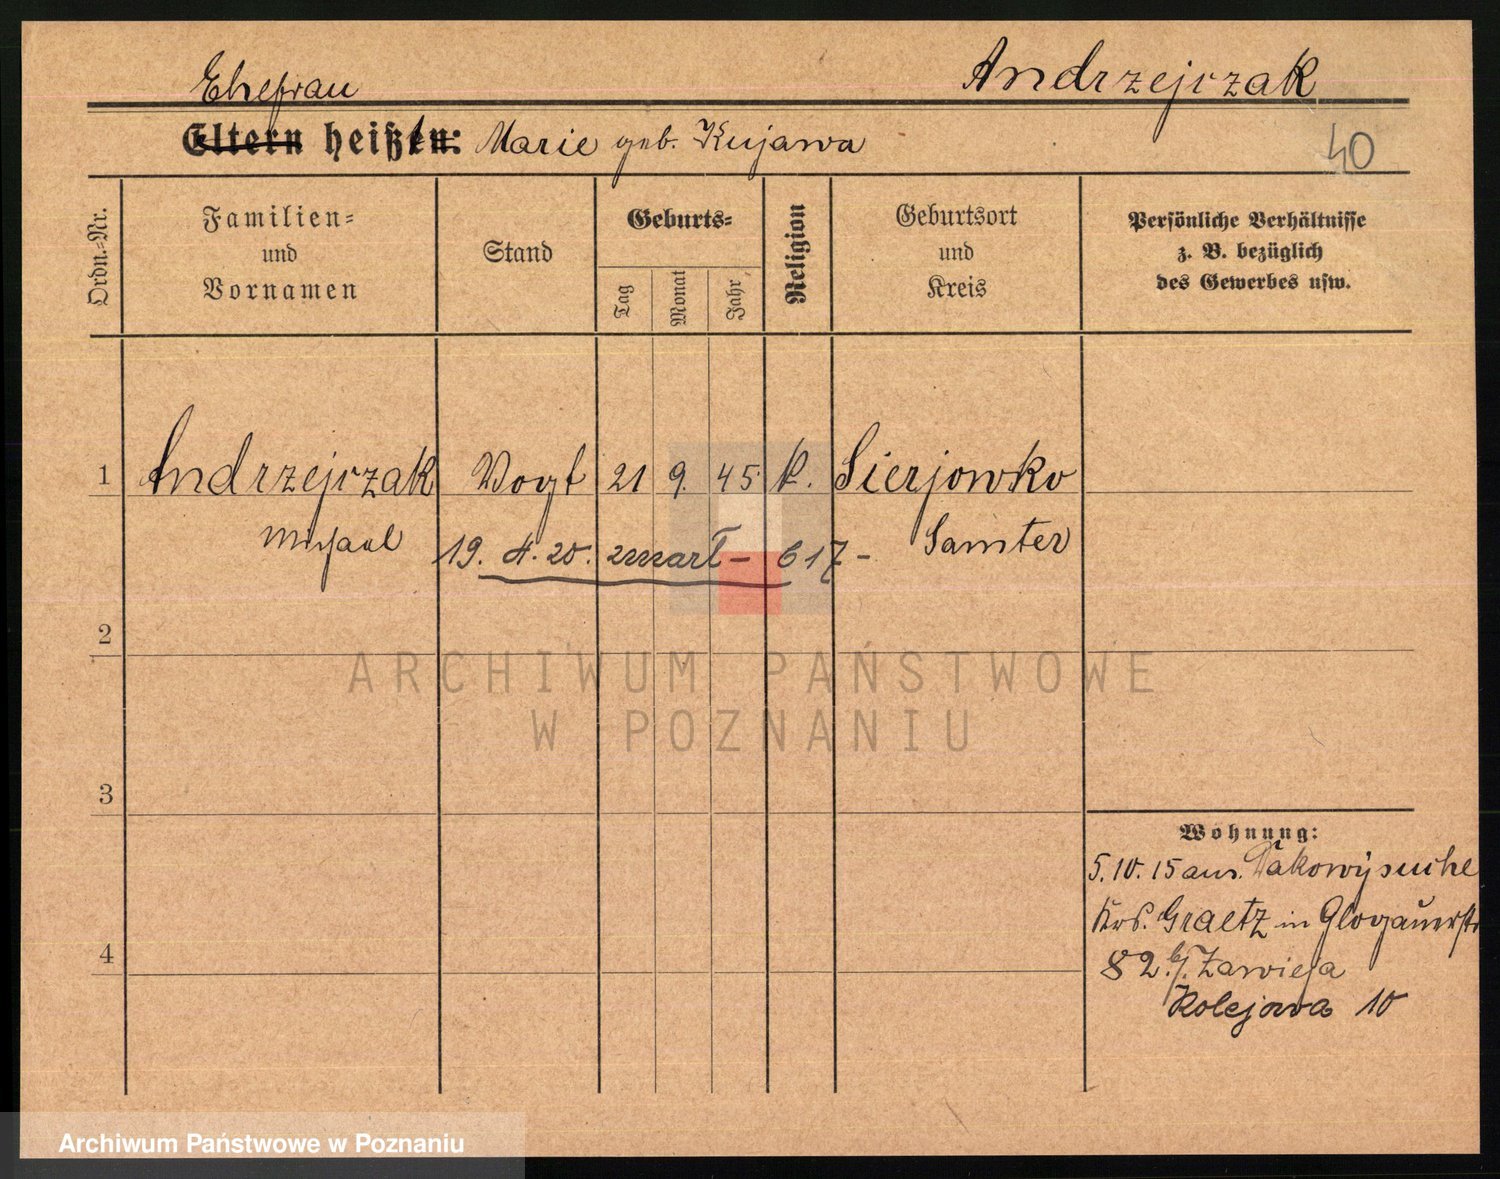 Andrzejczak
Ehefrau
Eltern heißen: Marie geb. Kujawa
40
Ordn.=Nr.
Familien=
und
Vornamen
Stand
Geburts=
Tag
Monat
Jahr
Religion
Geburtsort
und
Kreis
Persönliche Verhältnisse
z. B. bezüglich
des Gewerbes usw.
1 Andrzejczak Vogt 21 9. 45 k. Sierjowko
Michael Samter
19. 4. 20. zmarł – 617 –
2
ARCHIWUM PAŃSTWOWE
W POZNANIU
3
Wohnung:
5.10.15 aus. Ptakowysuche
Krs. Graetz in Glogauerstr
4
82 b/. Zawieja
Kolejowa 10
Archiwum Państwowe w Poznaniu